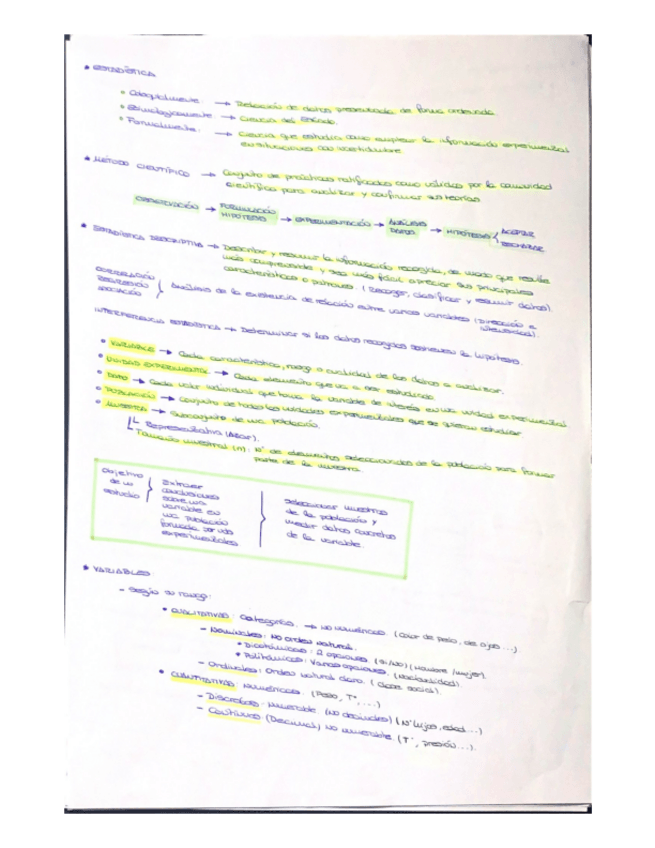 * ESTADÍSTICA
• Coloquialmente: → Relación de datos presentada de forma ordenada.
• Etimológicamente → Ciencia del Estado.
• Formalmente: → Ciencia que estudia como emplear la información experimental
en situaciones con incertidumbre
* MÉTODO CIENTÍFICO → Conjunto de prácticas ratificadas como válidas por la comunidad
científica para analizar y confirmar sus teorías.
OBSERVACIÓN → FORMULACIÓN HIPÓTESIS → EXPERIMENTACIÓN → ANÁLISIS DATOS → HIPÓTESIS { ACEPTAR
RECHAZAR
* ESTADÍSTICA DESCRIPTIVA → Describir y resumir la información recogida, de modo que resulte
más comprensible y sea más fácil apreciar sus principales
características o patrones. (Recoger, clasificar y resumir datos).
CORRELACIÓN
REGRESIÓN
ASOCIACIÓN
} Análisis de la existencia de relación entre varias variables (Dirección e
intensidad).
ESTADÍSTICA → Determinar si los datos recogidos sostienen la hipótesis.
• VARIABLE → Cada característica, rasgo o cualidad de los datos a analizar.
• UNIDAD EXPERIMENTAL → Cada elemento que va a ser estudiado.
• DATO → Cada valor individual que toma la variable de interés en una unidad experimental.
• POBLACIÓN → Conjunto de todas las unidades experimentales que se quieren estudiar
• MUESTRA → Subconjunto de una población.
Representativa (Azar).
Tamaño muestral (n): Nº de elementos seleccionados de la población para formar
parte de la muestra.
Objetivo
de un
estudio
Extraer
conclusiones
sobre una
variable en
una población
formada por uds
experimentales
Seleccionar muestras
de la población y
medir datos concretos
de la variable.
* VARIABLES
- Según su rango:
• CUALITATIVAS: Categorías. → no numéricas. (Color de pelo, de ojos...)
- Nominales: No orden natural.
• Dicotómicas: 2 opciones (Si/No) (Hombre/mujer).
• Politómicas: Varias opciones. (Nacionalidad).
- Ordinales: Orden natural claro. (Clase social).
• CUANTITATIVAS: Numéricas. (Peso, Tª, ...)
- Discretas: Numerable. (No decimales) (Nº hijos, edad...)
- Continuas: (Decimal) No numerable. (Tª, presión...).